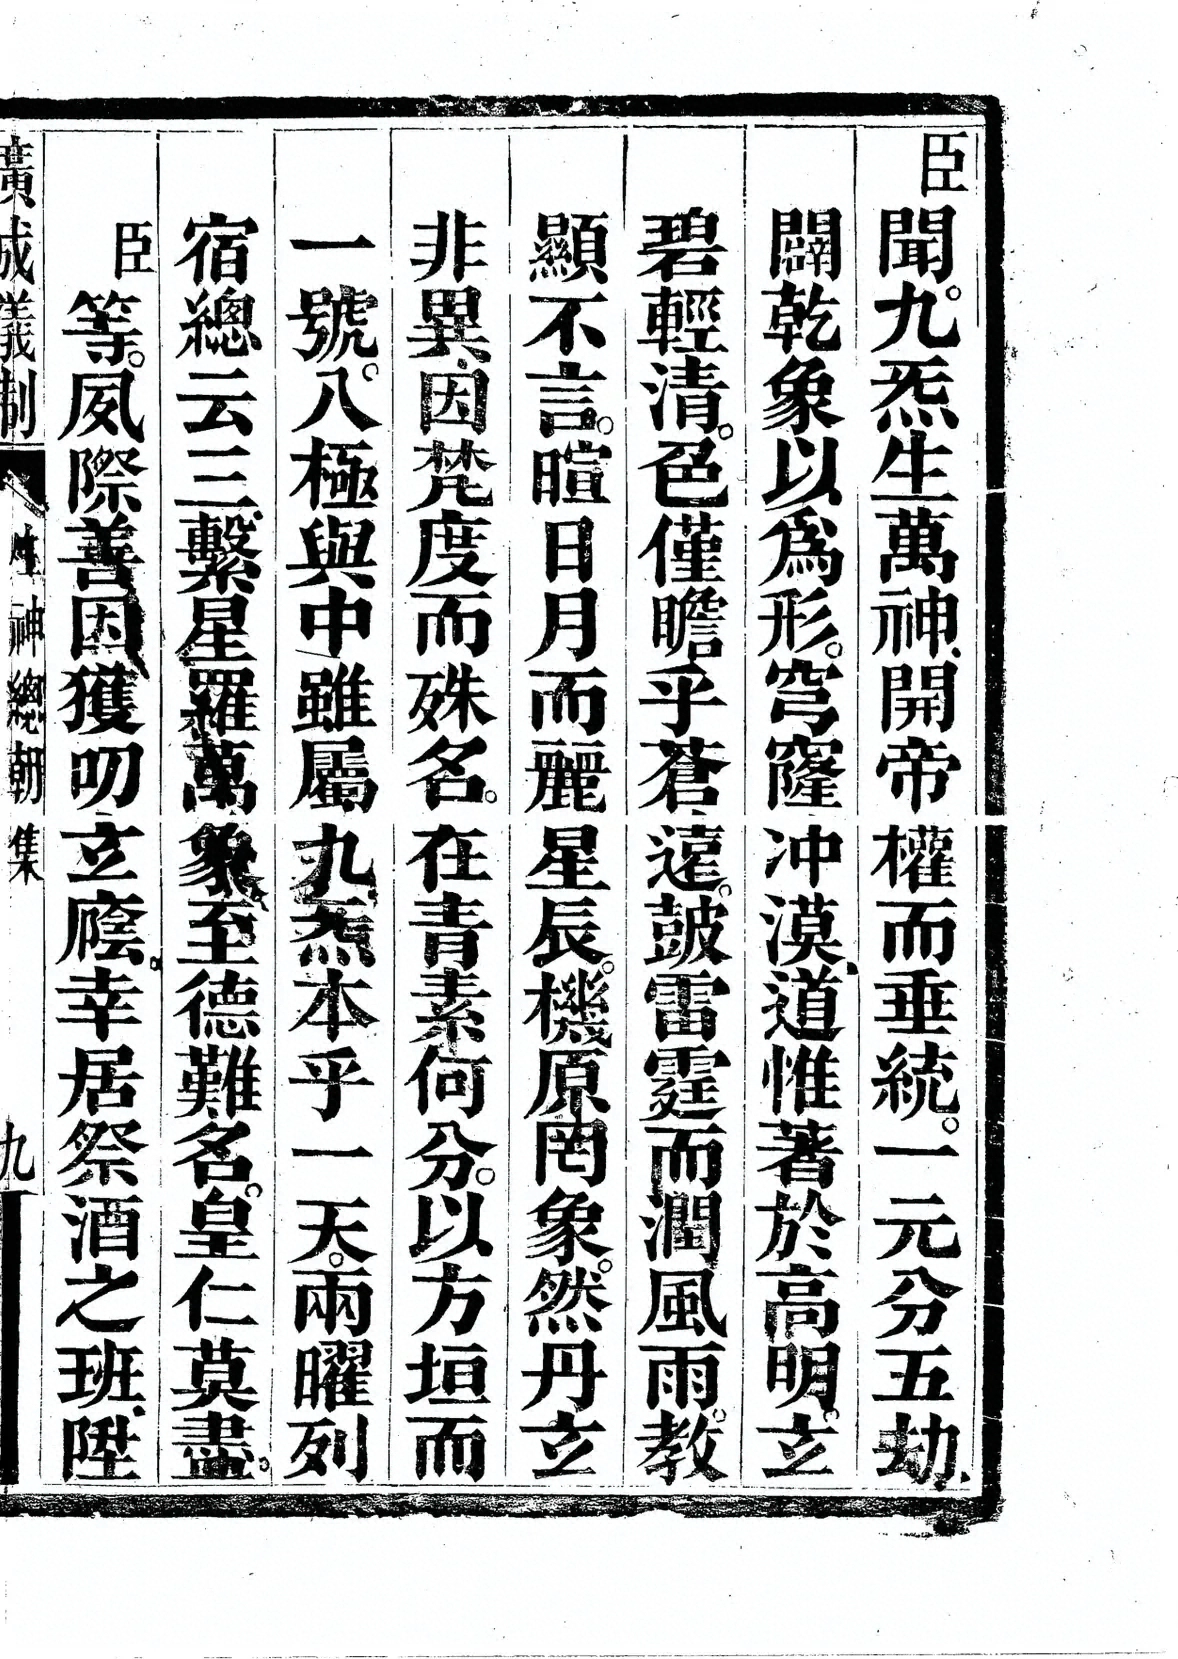 臣聞。九炁生萬神、開帝權而垂統。一元分五劫、
闢乾象以爲形。穹窿冲漠、道惟著於高明。玄
碧輕清。色僅瞻乎蒼遠。鼓雷霆而潤風雨。教
顯不言。暄日月而麗星辰。機原罔象。然丹玄
非異、因梵度而殊名。在青素何分。以方垣而
一號。八極與中雖屬九炁、本乎一天。兩曜列
宿總云三、繫星羅萬象、至德難名。皇仁莫盡。
臣等。夙際善因、獲叨玄廕。幸居祭酒之班、陞
廣成儀制 生神總朝集 九